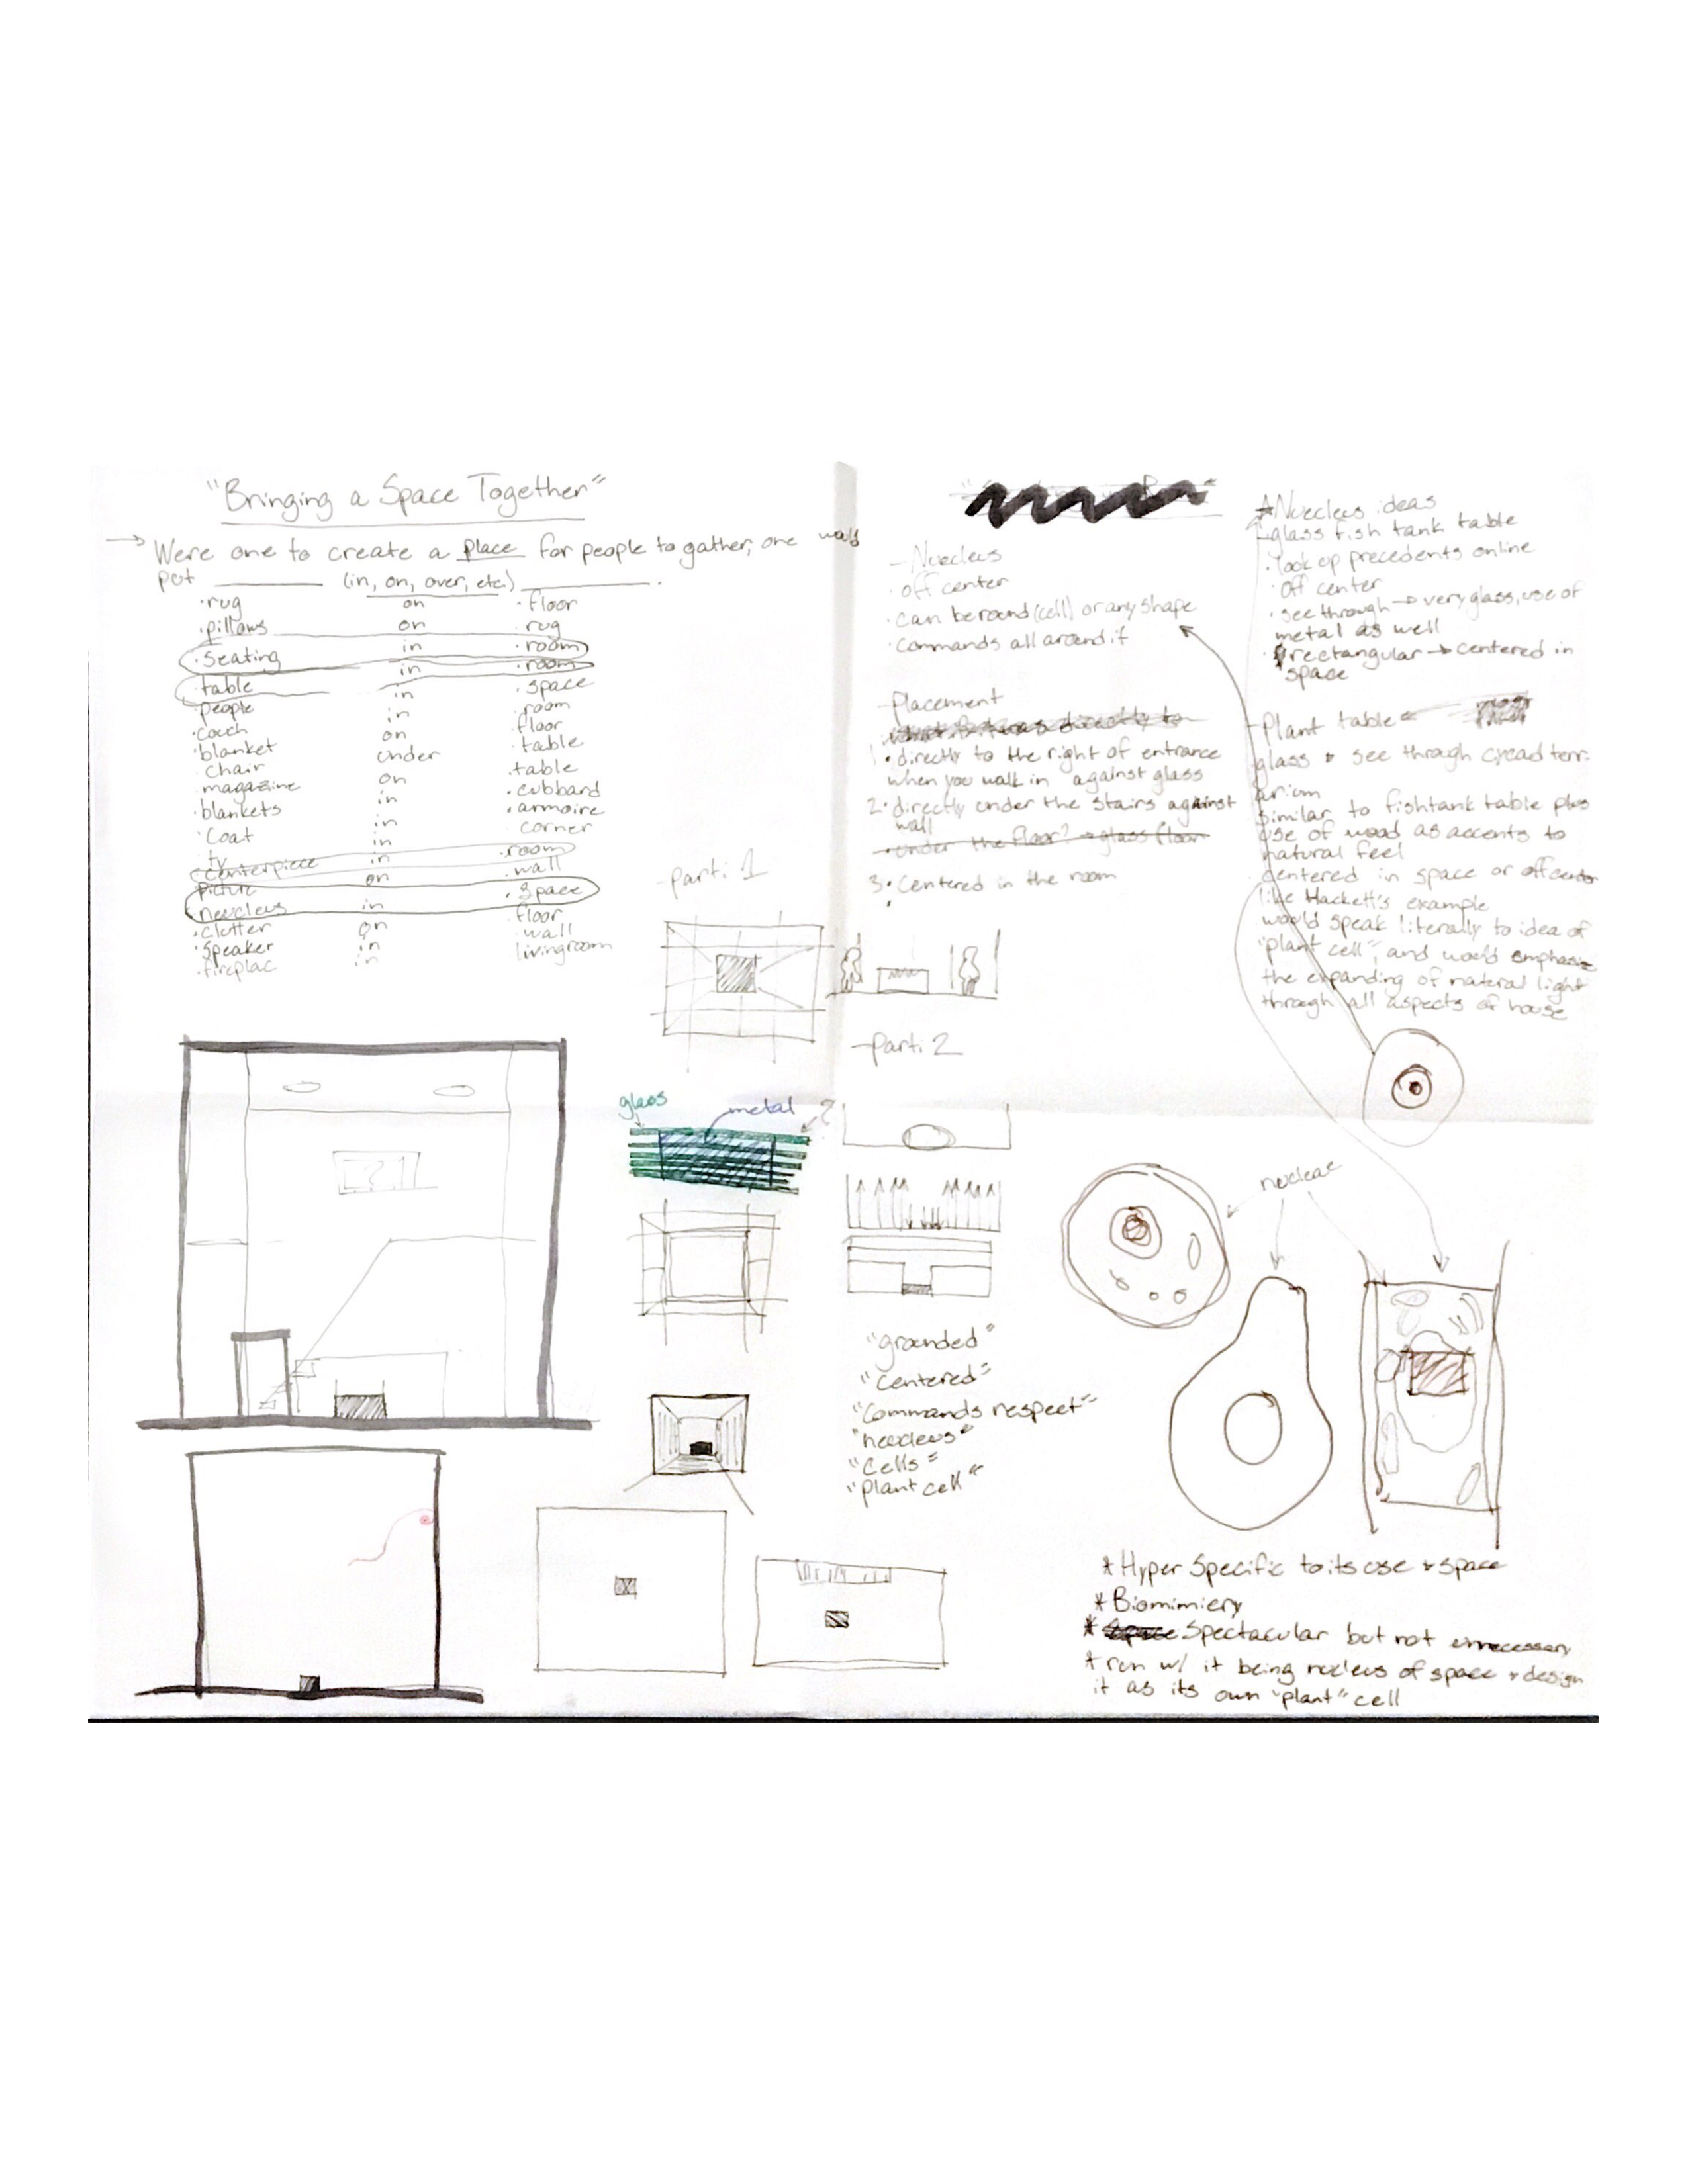 "Bringing a Space Together"
→ Were one to create a place for people to gather, one would
put ________ (in, on, over, etc.) ________.
·rug on ·floor
·pillows on ·rug
·seating in ·room
·table in ·room
·people in ·space
·couch in ·room
·blanket on ·floor
·chair under ·table
·magazine on ·table
·blankets in ·cubbard
·coat in ·armoire
·tv in corner
·centerpiece in ·room
·picture on ·wall
·neucleus in ·space
·clutter on ·floor
·speaker in ·wall
·fireplac in livingroom
-parti 1
glass
metal
?
-Nuecleus
·off center
·can be round (cell) or any shape
·commands all around it
-Placement
directly to
1 · directly to the right of entrance
when you walk in against glass
2· directly under the stairs against
wall
·under the floor? → glass floor
3· Centered in the room
-parti 2
"grounded"
"Centered"
"Commands respect"
"neucleus"
"Cells"
"plant cell"
*Nuecleus ideas
-glass fish tank table
·look up precedents online
·off center
·see through → very glass, use of
metal as well
·rectangular → centered in
space
-Plant table
glass + see through terr-
arium
similar to fishtank table plus
use of wood as accents to
natural feel
centered in space or offcenter
like Hackett's example
would speak literally to idea of
"plant cell", and would emphasize
the expanding of natural light
through all aspects of house
*Hyper specific to its use + space
*Biomimiery
*Space Spectacular but not unnecessary
*run w/ it being nucleus of space + design
it as its own "plant" cell